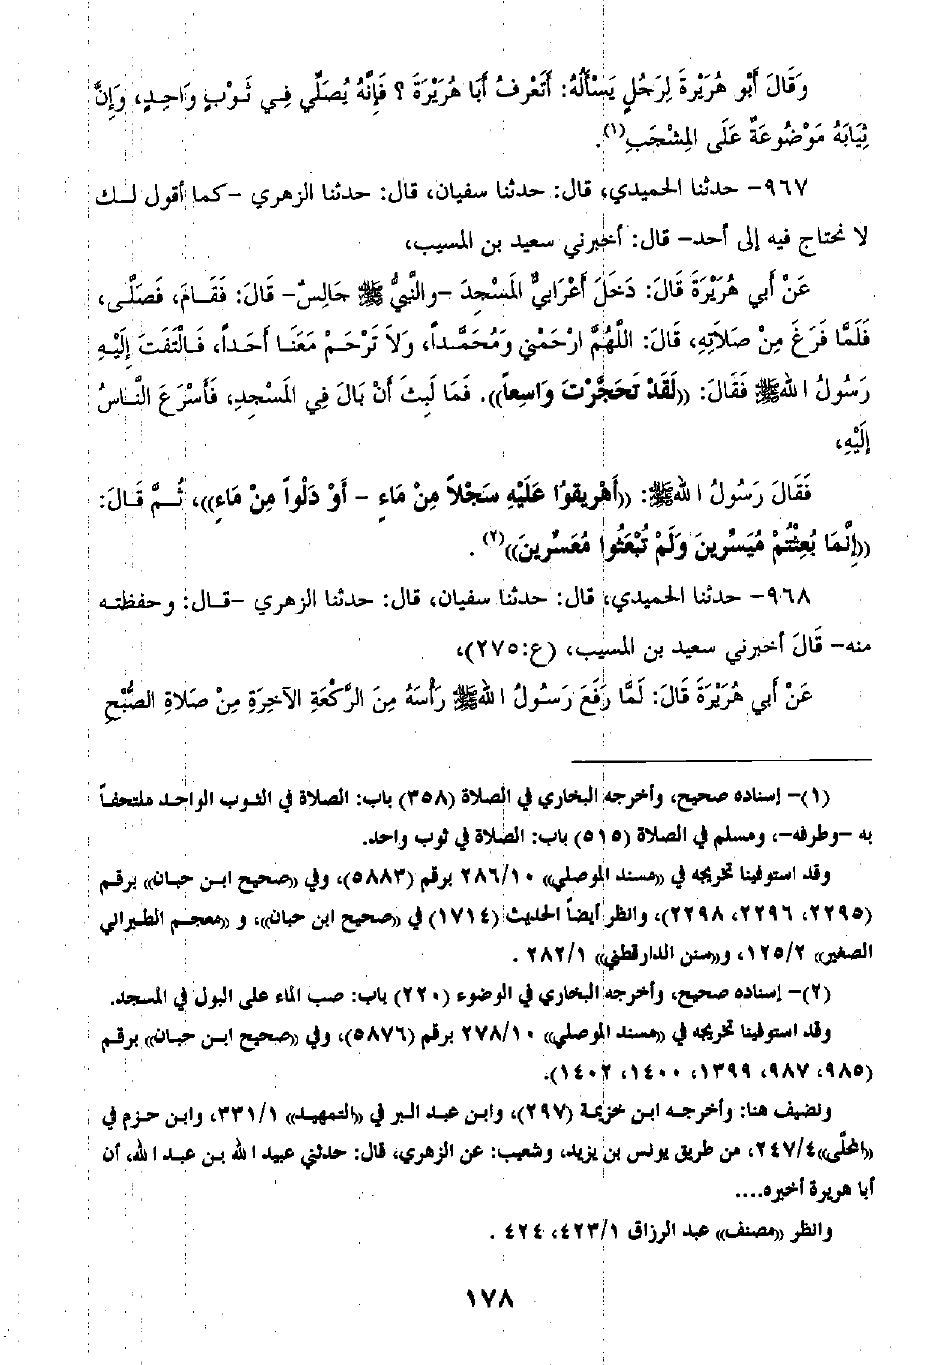 وَقَالَ أَبُو هُرَيْرَةَ لِرَجُلٍ يَسْأَلُهُ: أَتَعْرِفُ أَبَا هُرَيْرَةَ ؟ فَإِنَّهُ يُصَلِّي فِي ثَوْبٍ وَاحِدٍ، وَإِنَّ
ثِيَابَهُ مَوْضُوعَةٌ عَلَى المِشْجَبِ(١).
٩٦٧- حدثنا الحميدي، قال: حدثنا سفيان، قال: حدثنا الزهري -كما أقول لك
لا نحتاج فيه إلى أحد- قال: أخبرني سعيد بن المسيب،
عَنْ أَبِي هُرَيْرَةَ قَالَ: دَخَلَ أَعْرَابِيٌّ المَسْجِدَ -والنَّبِيُّ ﷺ جَالِسٌ- قَالَ: فَقَامَ، فَصَلَّى،
فَلَمَّا فَرَغَ مِنْ صَلاَتِهِ، قَالَ: اللَّهُمَّ ارْحَمْنِي وَمُحَمَّداً، وَلاَ تَرْحَمْ مَعَنَا أَحَداً، فَالْتَفَتَ إِلَيْهِ
رَسُولُ اللهِ ﷺ فَقَالَ: ((لَقَدْ تَحَجَّرْتَ وَاسِعاً)). فَمَا لَبِثَ أَنْ بَالَ فِي المَسْجِدِ، فَأَسْرَعَ النَّاسُ
إِلَيْهِ،
فَقَالَ رَسُولُ اللهِ ﷺ: ((أَهْرِيقُوا عَلَيْهِ سَجْلاً مِنْ مَاءٍ - أَوْ دَلْواً مِنْ مَاءٍ))، ثُمَّ قَالَ:
((إِنَّمَا بُعِثْتُمْ مُيَسِّرِينَ وَلَمْ تُبْعَثُوا مُعَسِّرِينَ))(٢) .
٩٦٨- حدثنا الحميدي، قال: حدثنا سفيان، قال: حدثنا الزهري -قال: وحفظته
منه- قَالَ أخبرني سعيد بن المسيب، (ع:٢٧٥)،
عَنْ أَبِي هُرَيْرَةَ قَالَ: لَمَّا رَفَعَ رَسُولُ اللهِ ﷺ رَأْسَهُ مِنَ الرَّكْعَةِ الآخِرَةِ مِنْ صَلاَةِ الصُّبْحِ
(١)- إسناده صحيح، وأخرجه البخاري في الصلاة (٣٥٨) باب: الصلاة في الثوب الواحد ملتحفاً
به -وطرفه-، ومسلم في الصلاة (٥١٥) باب: الصلاة في ثوب واحد.
وقد استوفينا تخريجه في ((مسند الموصلي)) ٢٨٦/١٠ برقم (٥٨٨٣)، وفي ((صحيح ابن حبان)) برقم
(٢٢٩٥، ٢٢٩٦، ٢٢٩٨)، وانظر أيضاً الحديث (١٧١٤) في ((صحيح ابن حبان))، و ((معجم الطبراني
الصغير)) ١٢٥/٢، و((سنن الدارقطني)) ٢٨٢/١ .
(٢)- إسناده صحيح، وأخرجه البخاري في الوضوء (٢٢٠) باب: صب الماء على البول في المسجد.
وقد استوفينا تخريجه في ((مسند الموصلي)) ٢٧٨/١٠ برقم (٥٨٧٦)، وفي ((صحيح ابن حبان)) برقم
(٩٨٥، ٩٨٧، ١٣٩٩، ١٤٠٠، ١٤٠٢).
ونضيف هنا: وأخرجه ابن خزيمة (٢٩٧)، وابن عبد البر في ((التمهيد)) ٣٣١/١، وابن حزم في
((المحلّى)) ٢٤٧/٤، من طريق يونس بن يزيد، وشعيب: عن الزهري، قال: حدثني عبيد الله بن عبد الله، أن
أبا هريرة أخبره....
وانظر ((مصنف)) عبد الرزاق ٤٢٣/١، ٤٢٤ .
١٧٨